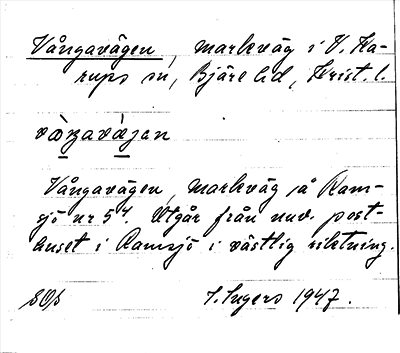 Vångavägen, markväg i V. Ka-
rups sn, Bjäre hd, Krist. l.
Vångavägen, markväg å Ram-
sjö nr 5⁴. Utgår från nuv. post-
huset i Ramsjö i västlig riktning.
I. Ingers 1947.